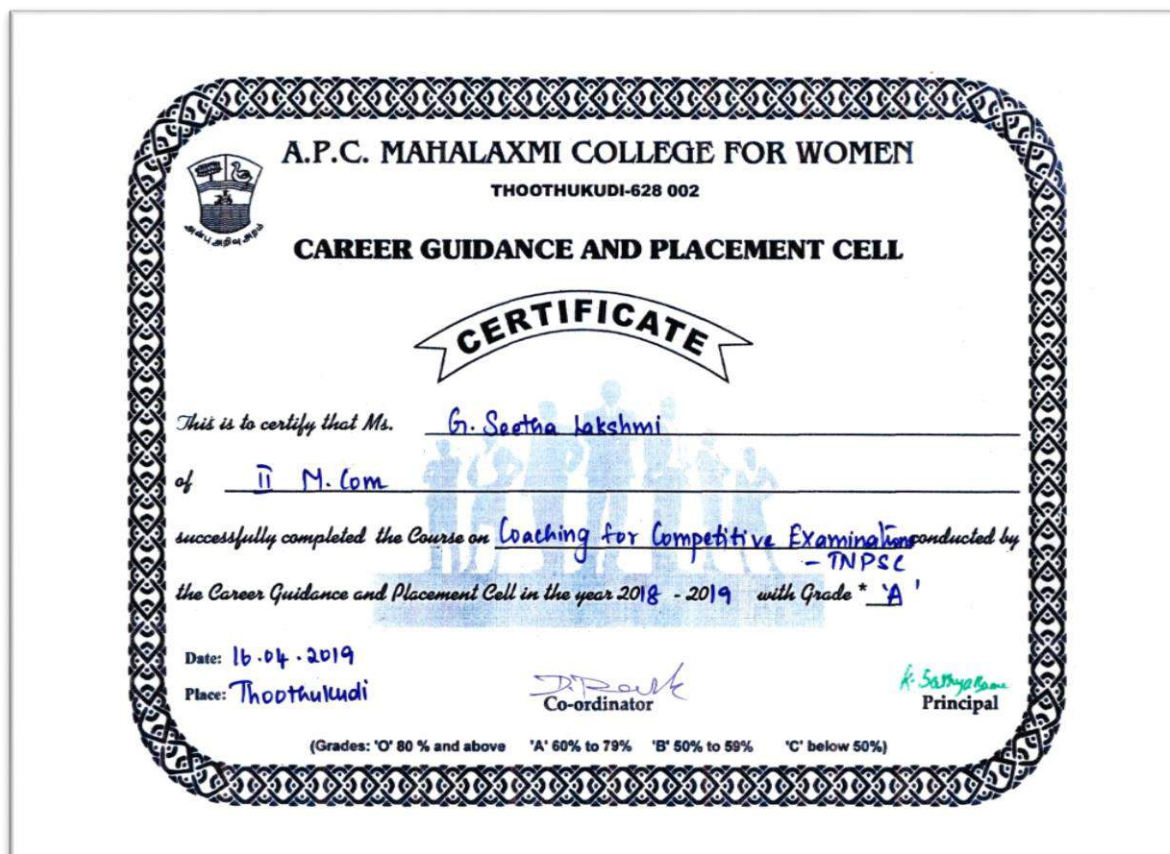 A.P.C. MAHALAXMI COLLEGE FOR WOMEN
THOOTHUKUDI-628 002
அன்பு அறிவு அறம்
CAREER GUIDANCE AND PLACEMENT CELL
CERTIFICATE
This is to certify that Ms. G. Seetha Lakshmi
of II M.Com
successfully completed the Course on Coaching for Competitive Examinations conducted by
- TNPSC
the Career Guidance and Placement Cell in the year 2018 - 2019 with Grade * 'A'
Date: 16.04.2019
Place: Thoothukudi
Co-ordinator
Principal
(Grades: 'O' 80 % and above 'A' 60% to 79% 'B' 50% to 59% 'C' below 50%)